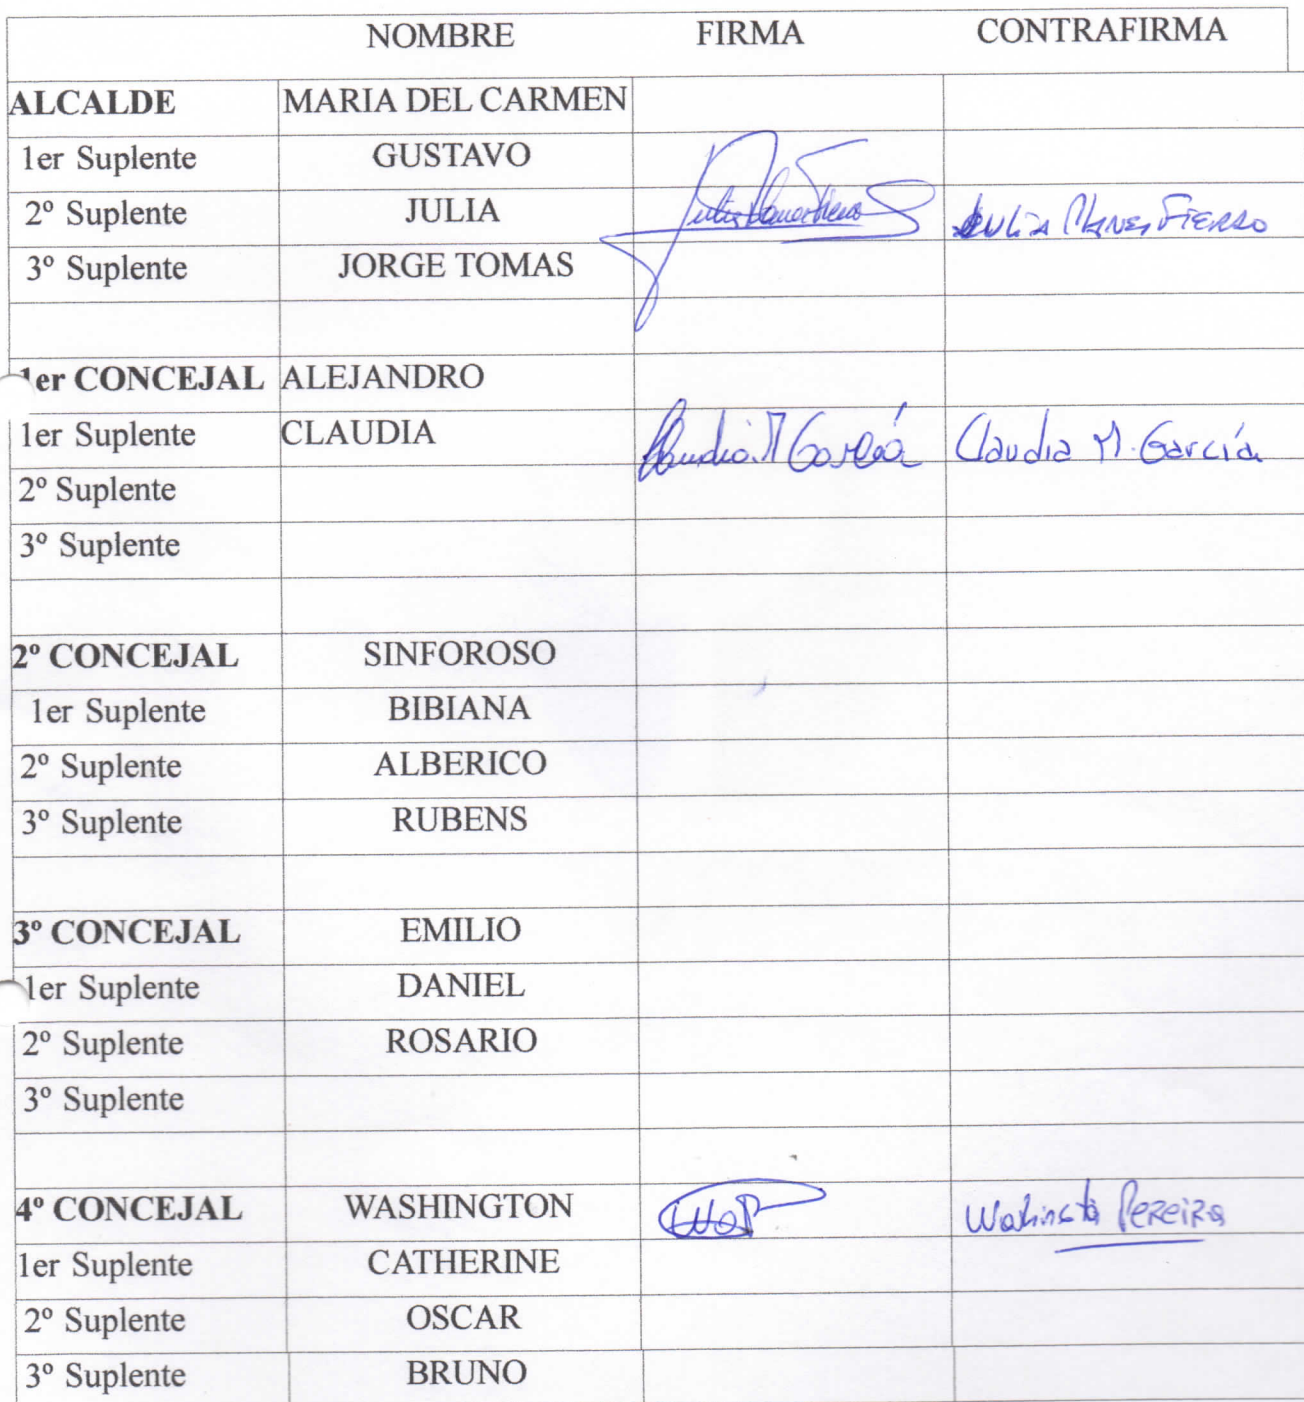 NOMBRE FIRMA CONTRAFIRMA
ALCALDE MARIA DEL CARMEN
1er Suplente GUSTAVO
2º Suplente JULIA JULIA FIERRO
3º Suplente JORGE TOMAS
1er CONCEJAL ALEJANDRO
1er Suplente CLAUDIA Claudia M García Claudia M. García
2º Suplente
3º Suplente
2º CONCEJAL SINFOROSO
1er Suplente BIBIANA
2º Suplente ALBERICO
3º Suplente RUBENS
3º CONCEJAL EMILIO
1er Suplente DANIEL
2º Suplente ROSARIO
3º Suplente
4º CONCEJAL WASHINGTON Pereira
1er Suplente CATHERINE
2º Suplente OSCAR
3º Suplente BRUNO